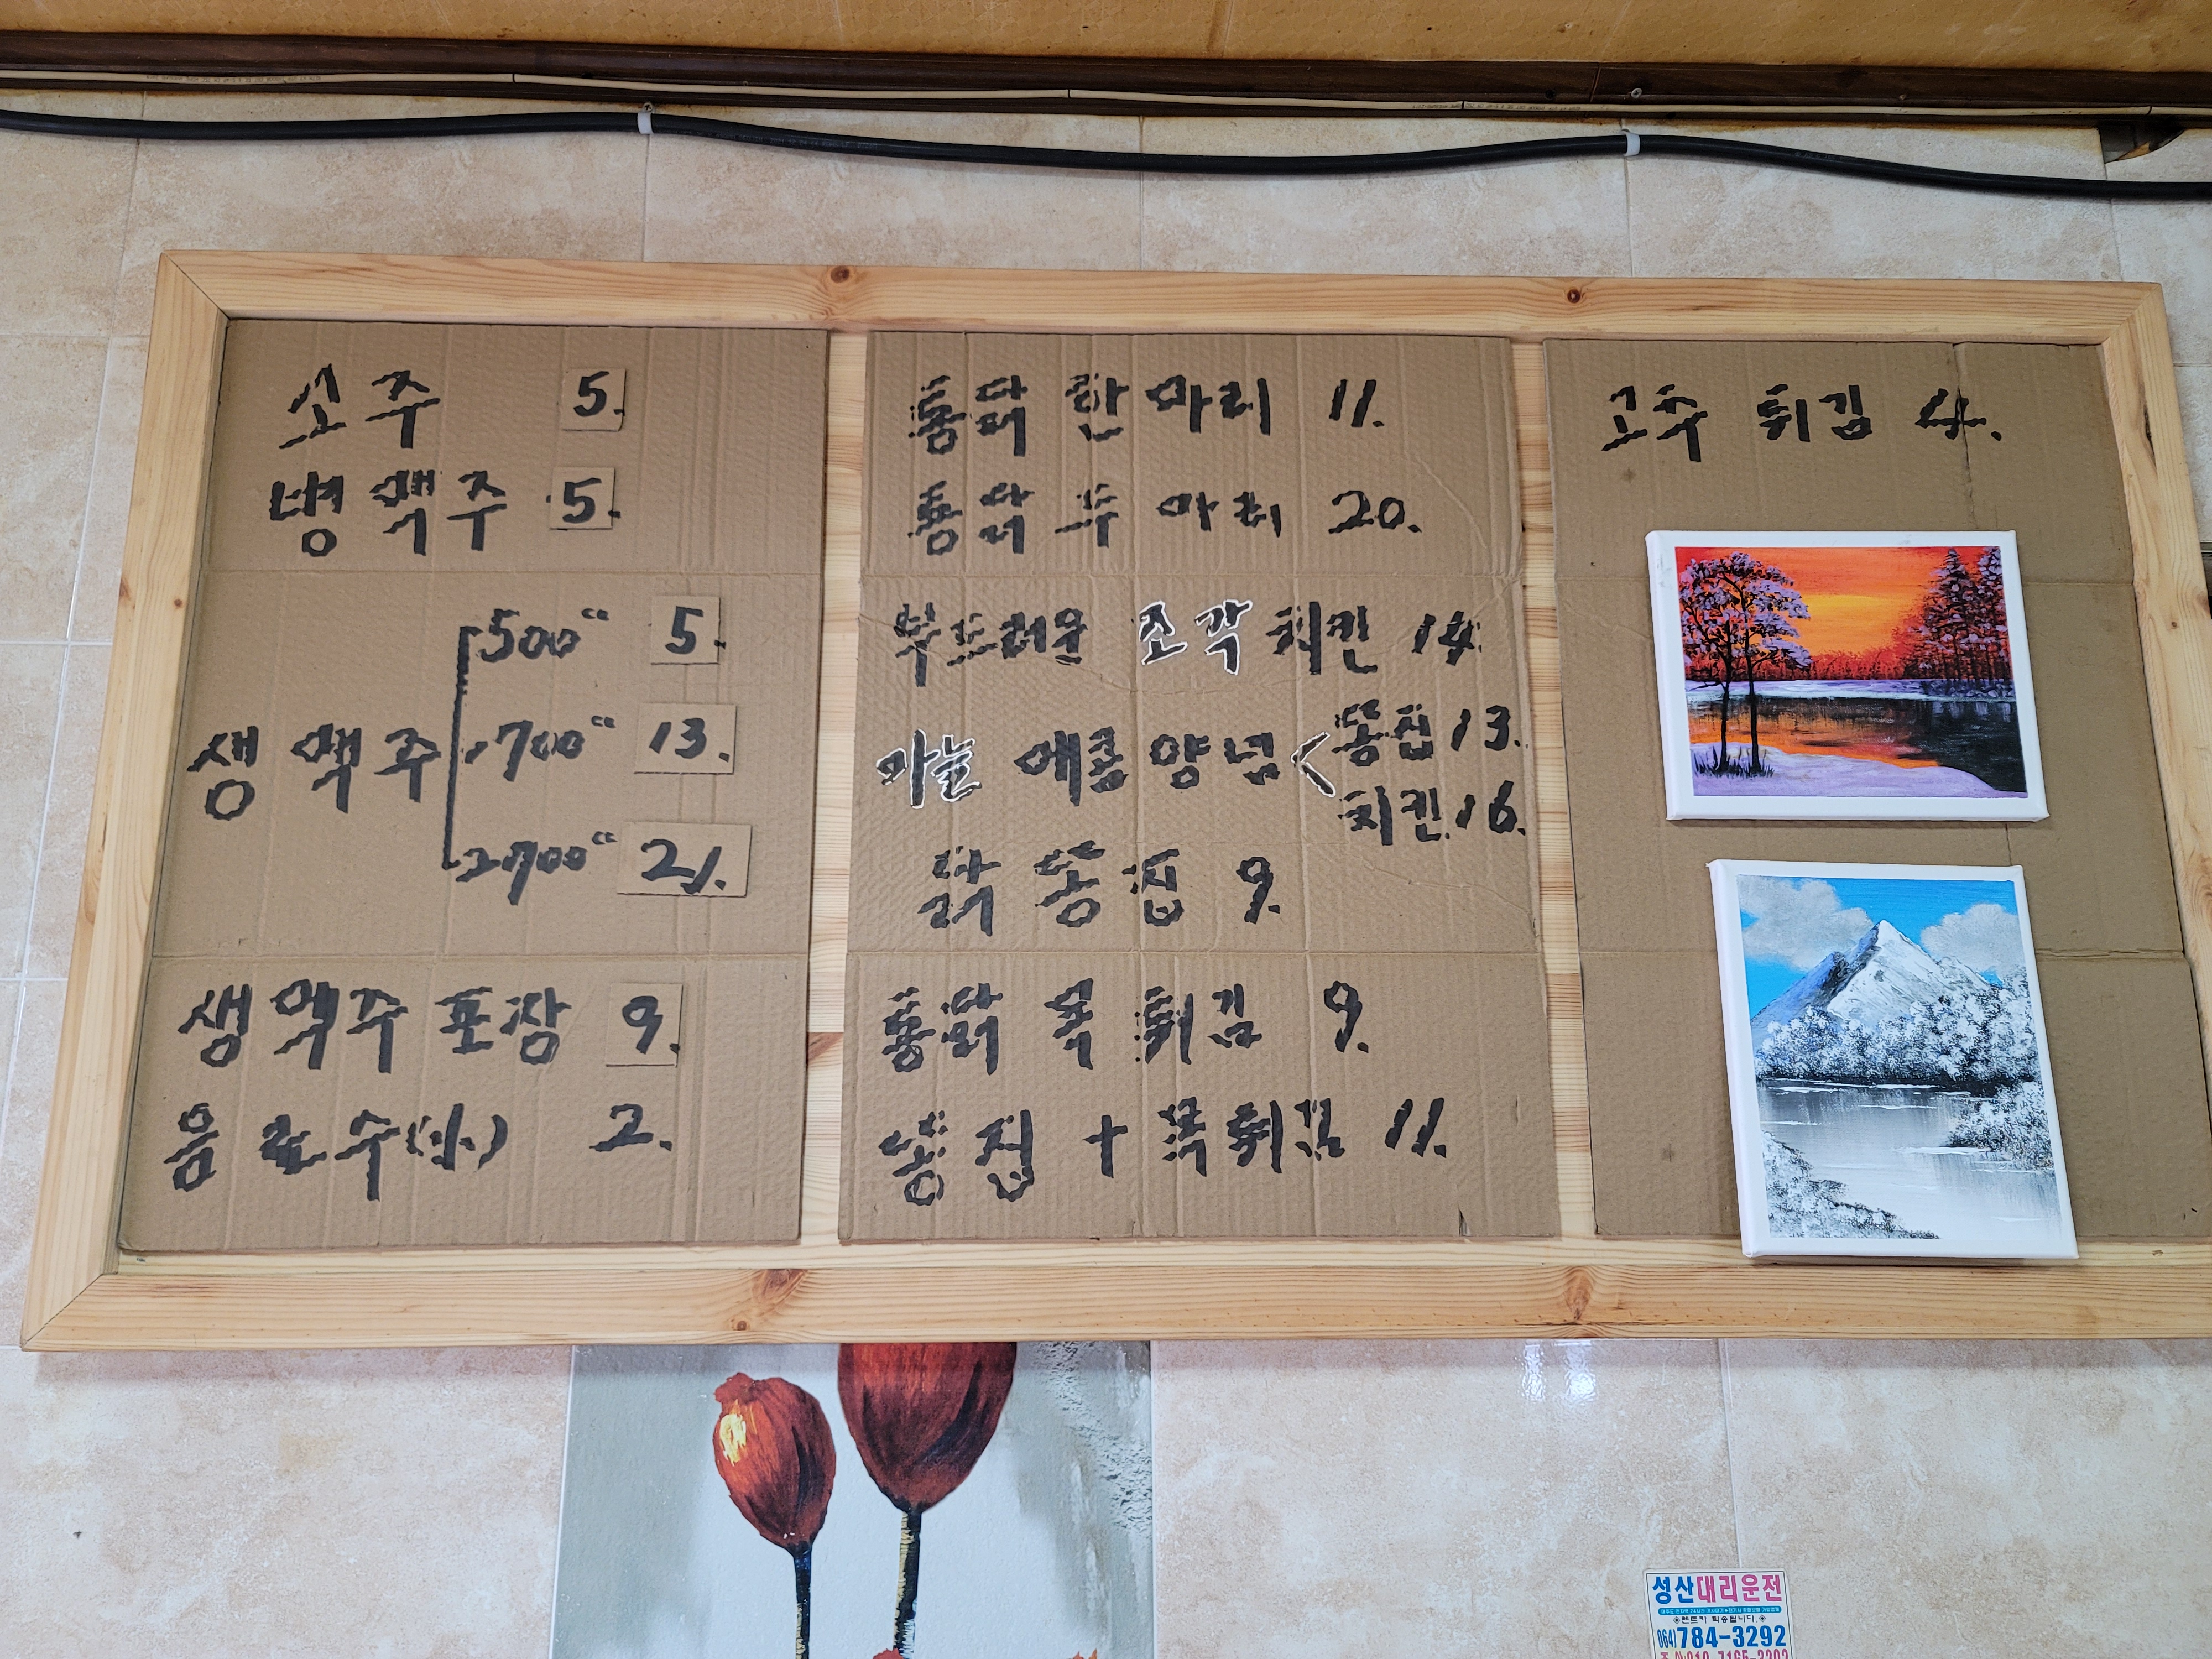 소주 5.
병 맥주 5.
생 맥주
500cc 5.
1700cc 13.
2700cc 21.
생 맥주 포장 9.
음료수(小) 2.
통닭 한 마리 11.
통닭 두 마리 20.
부드러운 조각 치킨 14.
마늘 매콤 양념 <
똥집 13.
치킨 16.
닭 똥집 9.
통닭 목 튀김 9.
똥집 + 목튀김 11.
고추 튀김 4.
성산대리운전
렌트카 탁송됩니다.
064)784-3292